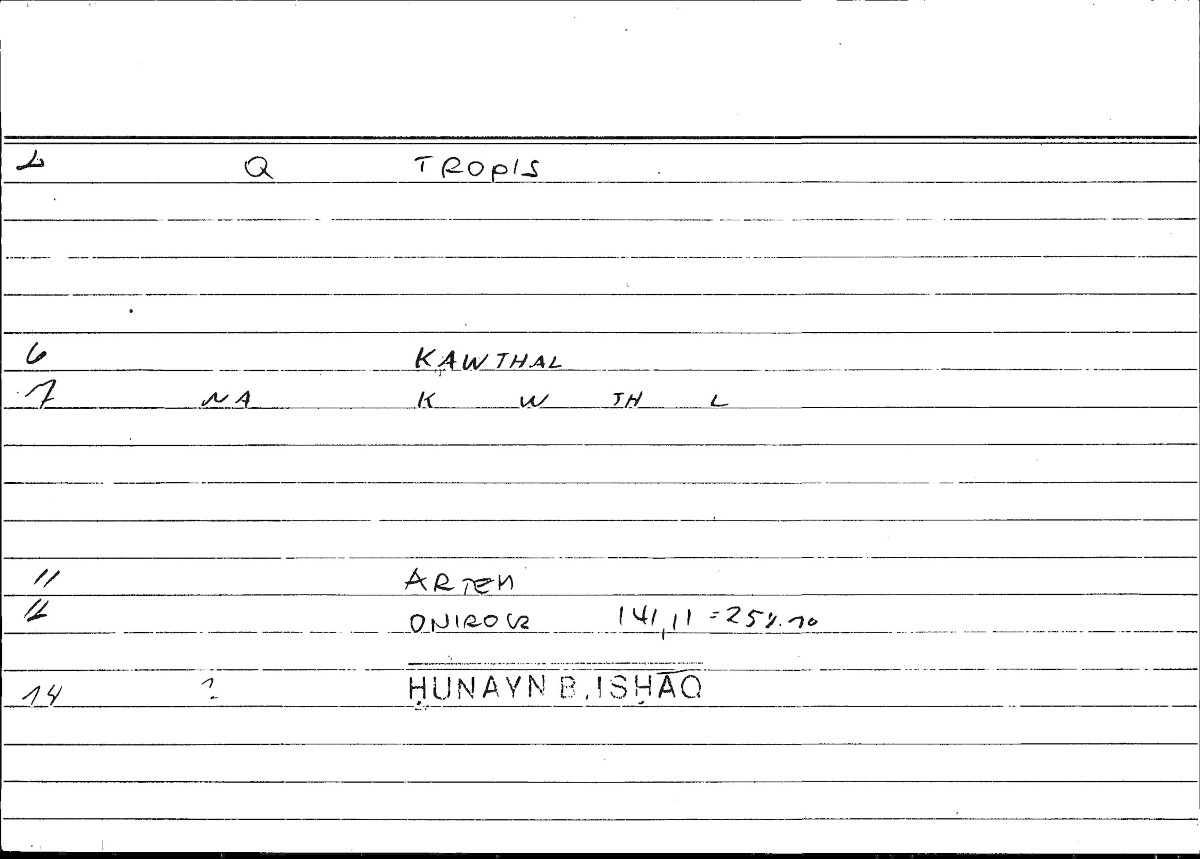 2 Q TROPIS
6 KAWTHAL
7 NA K W TH L
11 ARTEM
12 ONIROCR 141,11 =
14 ? ḤUNAYN B. ISḤĀQ